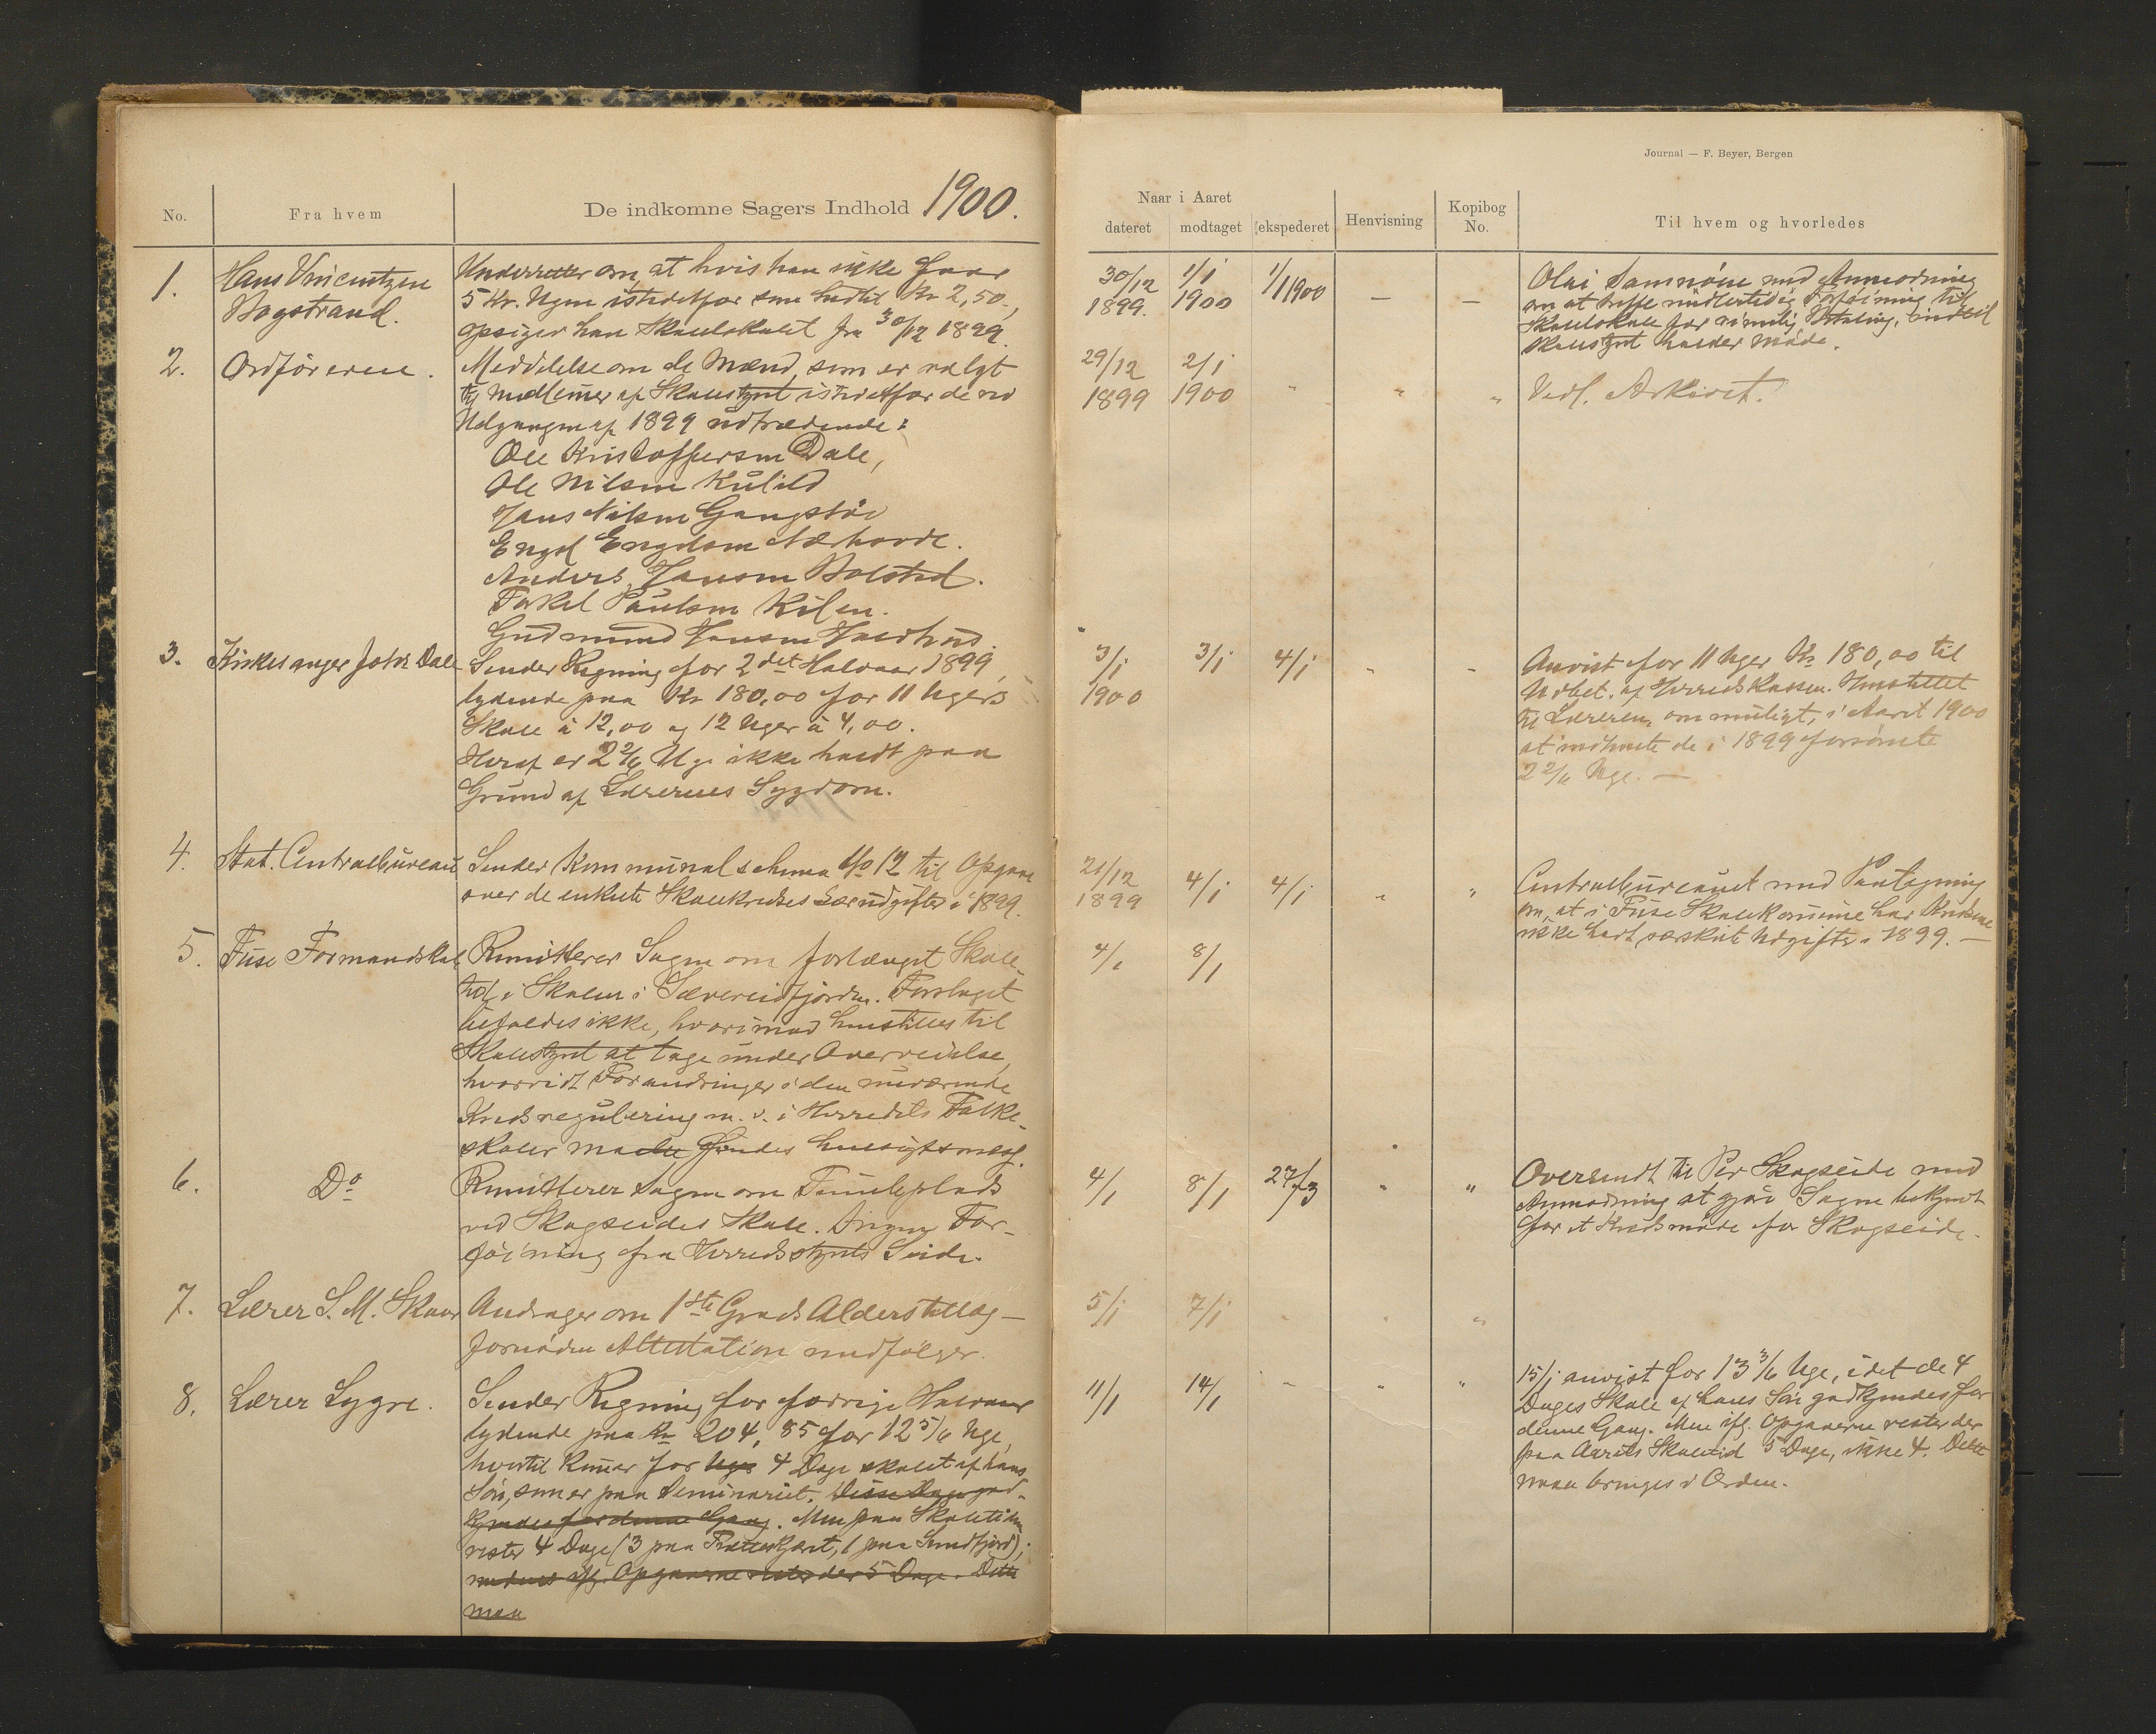 Journal — F. Beyer, Bergen
No.
Fra hvem
De indkomne Sagers Indhold 1900.
Naar i Aaret
dateret
modtaget
ekspederet
Henvisning
Kopibog
No.
Til hvem og hvorledes
1.
Hans Vincentzen
Bogstrand.
Underretter om, at hvis han ikke faar
5 Kr. Ugen istedetfor som hidtil Kr 2,50,
opsiger han Skolelokalet fra 30/12 1899.
30/12
1899.
1/1
1900
1/1 1900
—
—
Olai Samnöen med Anmodning
om at træffe midlertidig Forföining til
Skolelokale for rimelig Betaling, indtil
Skolestyret holder Möde.
2.
Ordföreren.
Meddelelse om de Mænd, som er valgt
til Medlemer af Skolestyret istedetfor de ved
Udgangen af 1899 udtrædende:
Ole Kristoffersen Dale,
Ole Nilsen Kulild
Hans Nilsen Gangstöe
Engel Engelsen Nærhovde.
Anders Hansen Bolstad.
Torkel Paulsen Kilen.
Gudmund Hansen
29/12
1899
2/1
1900
"
"
"
Vedl. Arkivet.
3.
Kirkesanger Johs Dale
Sender Regning for 2det Halvaar 1899,
lydende paa Kr 180,00 for 11 Ugers
Skole à 12,00 og 12 Uger à 4,00.
Heraf er 2 2/6 Uge ikke holdt paa
Grund af Lærerens Sygdom.
3/1
1900
3/1
4/1
"
"
Anvist for 11 Uger Kr 180,00 til
Udbet. af Herredskassen. Henstillet
til Læreren, om muligt, i Aaret 1900
at indhente de i 1899 forsömte
2 2/6 Uge. —
4.
Stat. Centralbureau
Sender Kommunalschema No 12 til Opgave
over de enkelte Skolekredses Særudgifter i 1899.
21/12
1899
4/1
4/1
"
"
Centralbureauet med Paategning
om, at i Fuse Skolekomune har Kredsene
ikke havt særskilt Udgifter i 1899. —
5.
Fuse Formandskab
Remitterer Sagen om forlænget Skole-
tid i Skolen i Sævereidfjorden. Forslaget
bifaldes ikke, hvorimod henstilles til
Skolestyret at tage under Overveielse,
hvorvidt Forandringer i den nuværende
Kredsregulering m. v. i Herredets Folke-
skoler maatte findes hensigtsmæss.
4/1
8/1
6.
Do
Remitterer Sagen om Tomteplads
ved Skogseides Skole. Ingen For-
föining fra Herredsstyrets Side.
4/1
8/1
27/3
"
"
Oversendt til Per Skogseide med
Anmodning at gjöre Sagen bekjendt
for et Kredsmöde for Skogseide.
7.
Lærer S. M. Skaar
Andrager om 1ste Grads Alderstillæg —
fornöden Attestation medfölger.
5/1
7/1
"
"
"
8.
Lærer Lygre.
Sender Regning for forrige Halvaar
lydende paa Kr 204,85 for 12 5/6 Uge,
hvortil kommer for Uges 4 Dage skolet af hans
Sön, som er paa Seminariet. Disse Dage god-
kjendes for denne Gang. Men paa Skoletiden
rester 4 Dage (3 paa, 1 paa);
medens ifg. Opgaverne rester der 5 Dage. Dette
maa
11/1
14/1
"
"
"
15/1 anvist for 13 3/6 Uge, idet de 4
Dages Skole af hans Sön godkjendes for
denne Gang. Men ifg. Opgaverne rester der
paa Aarets Skoletid 5 Dage, ikke 4. Dette
maa bringes i Orden.